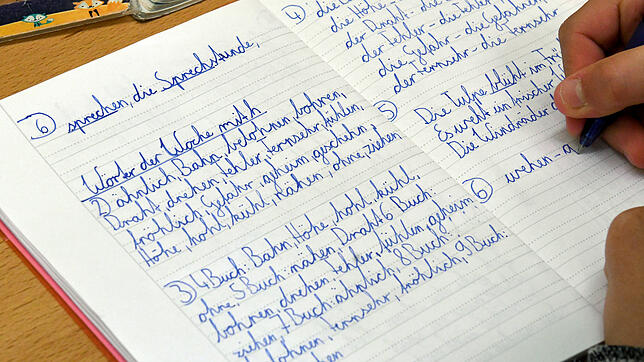 6 sprechen, die Sprechstunde,
Wörter der Woche mit h
2) ähnlich, Bahn, belohnen, bohren,
Draht, drehen, fehler, fernsehr, fühlen,
fröhlich, Gefahr, geheim, geschehn
Höhe, hohl, kühl, nähen, ohne, ziehen
3 4 Buch: Bahn, Höhe, hohl, kühl,
ohne, 5 Buch: nähen, Draht 6 Buch:
bohren, drehen, fehler, fühlen, geheim
ziehen 7 Buch: ähnlich, 8 Buch:
lohnen, fernsehr, fröhlich, 9 Buch:
4) die
die Höhe
der Draht - die
der Fehler - die Fehler
die Gefahr - die Gefahren,
der Fernsehr - die Fernsehr
5
Die Tulpe blüht im
Es weht ein frischer
Die Windräder
6 wehen - a